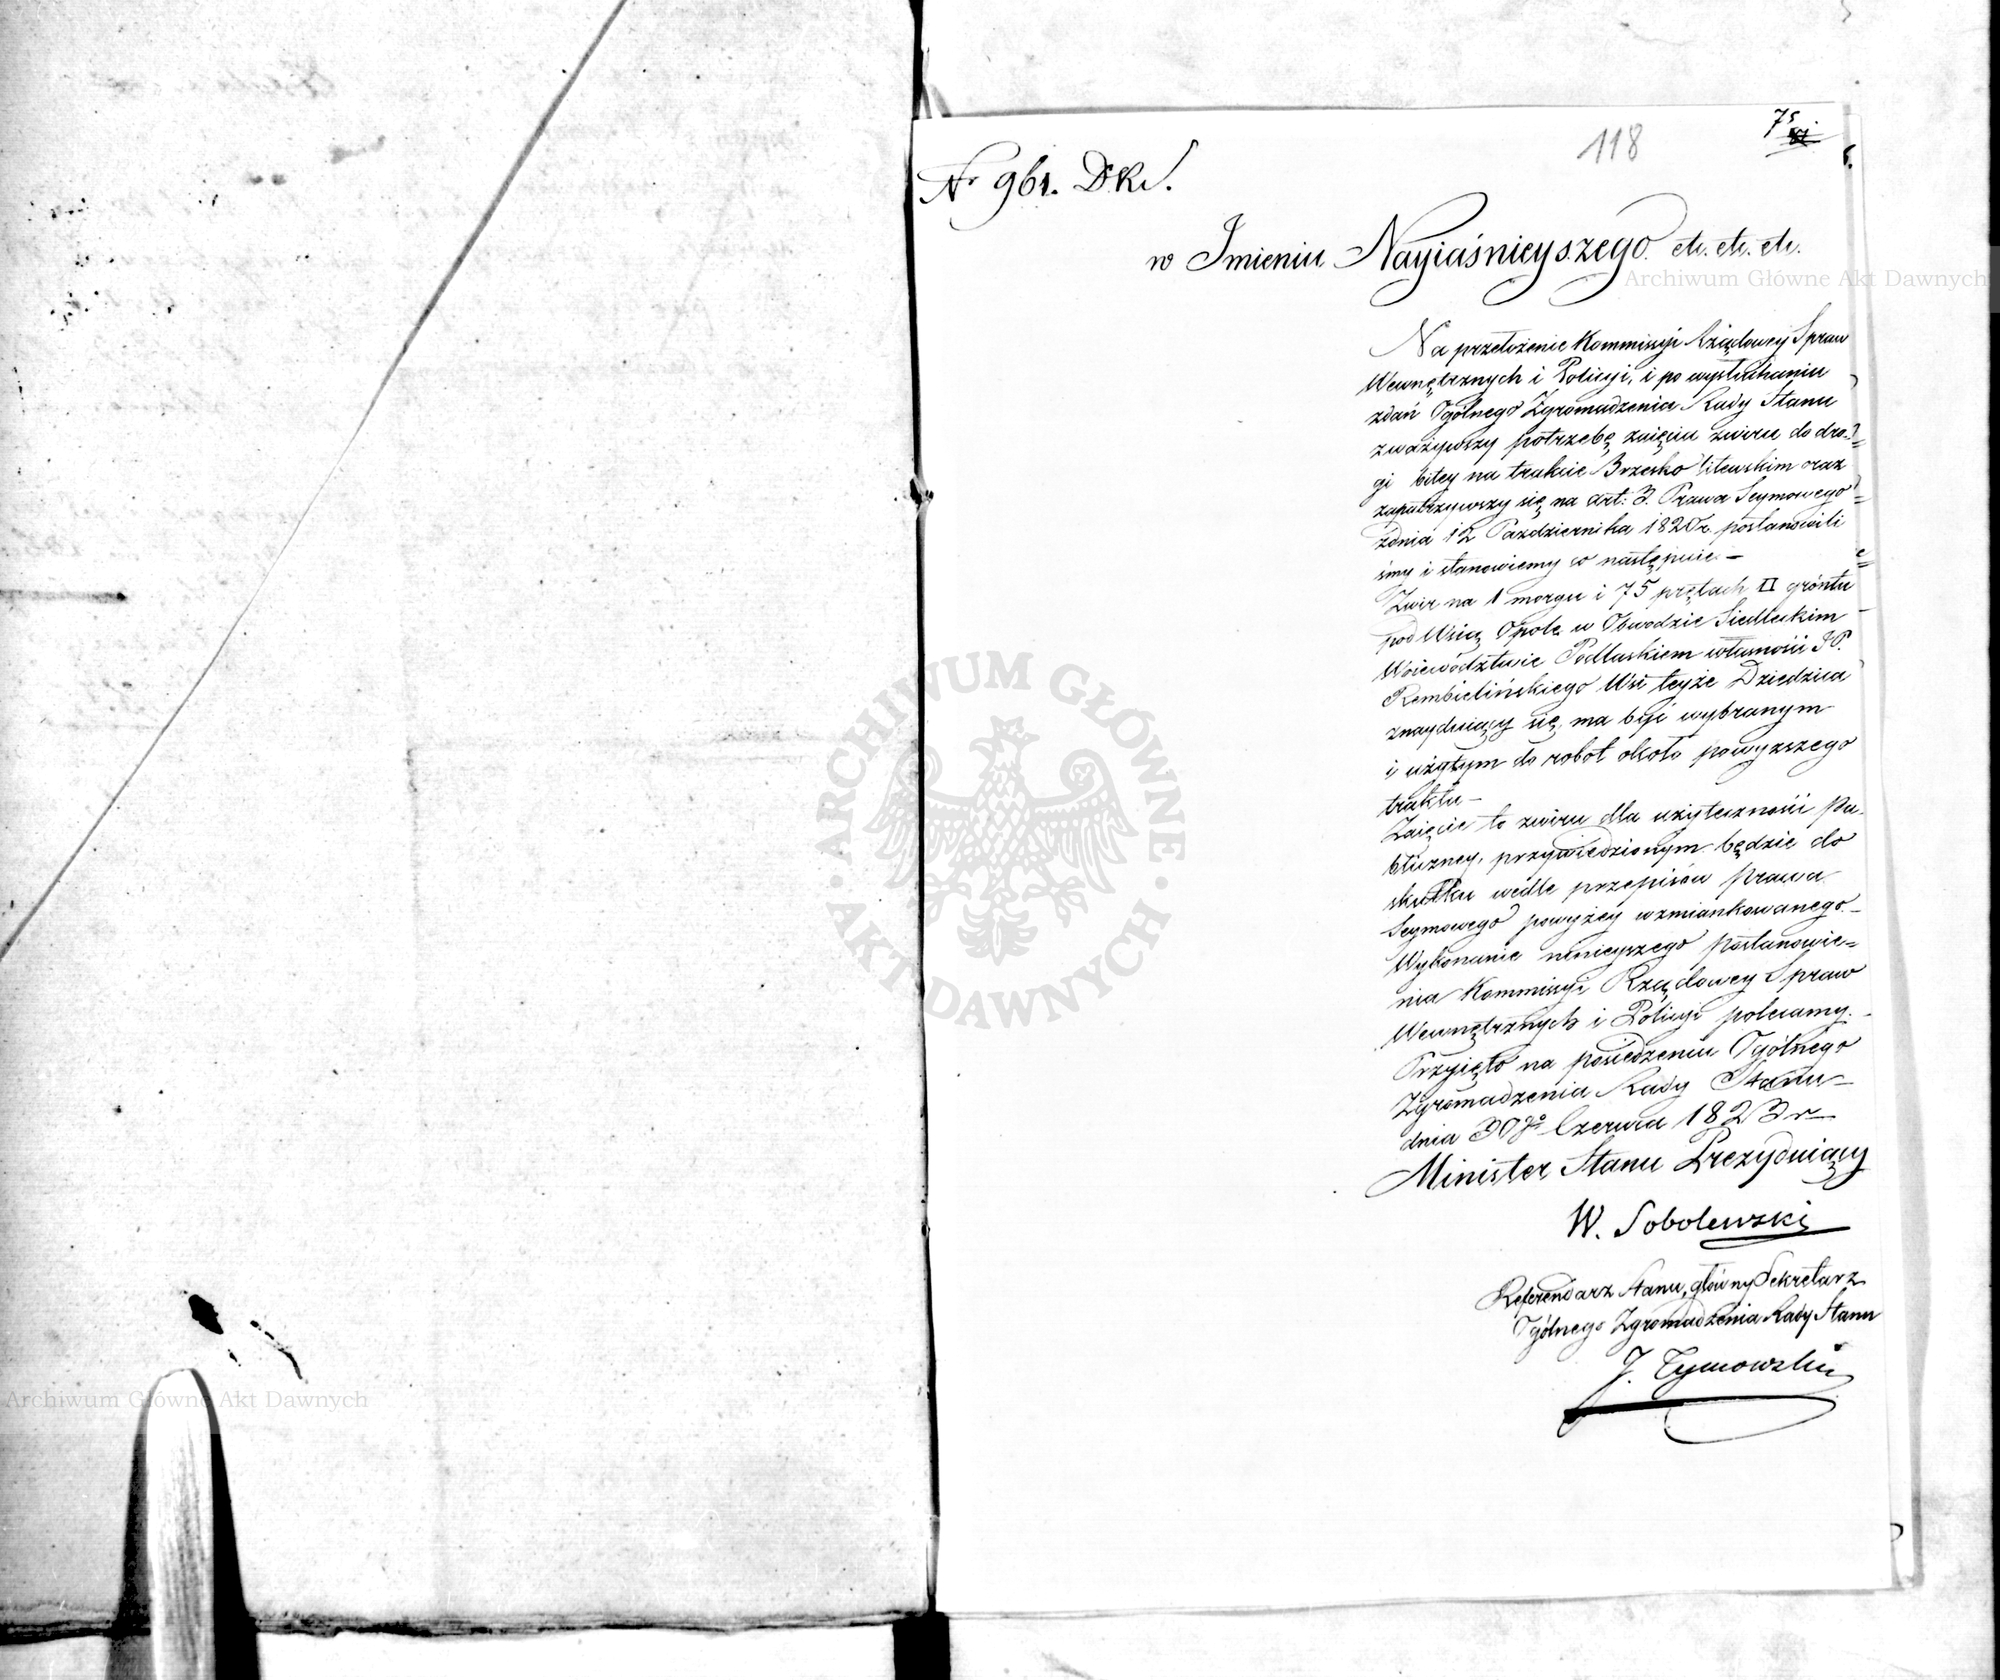 118
75
Nr 961. D.K.
w Imieniu Nayiaśnieyszego etc. etc. etc.
Na przełożenie Kommissyi Rządowey Spraw
Wewnętrznych i Policyi, i po wysłuchaniu
zdań Ogólnego Zgromadzenia Rady Stanu
zważywszy potrzebę zaięcia żwiru do dro=
gi bitey na trakcie Brzesko litewskim oraz
zapatrzywszy się na art: 3. Prawa Seymowego
zdnia 12 Pazdziernika 1820 r. postanowili
śmy i stanowiemy co następuie. –
Żwir na 1 morgu i 75 prętach □ gróntu
pod Wsią Opole w Obwodzie Siedleckim
Woiewództwie Podlaskiem własności JP.
Rembielińskiego Wsi teyże Dziedzica
znayduiący się, ma być wybranym
i użytym do robót około powyzszego
traktu –
Zaięcie to żwiru dla użyteczności pu-
bliczney, przywiedzionym będzie do
skutku wedle przepisów prawa
Seymowego powyżey wzmiankowanego. –
Wykonanie ninieyszego postanowie=
nia Kommissyi Rządowey Spraw
Wewnętrznych i Policyi polecamy. –
Przyięto na posiedzeniu Ogólnego
Zgromadzenia Rady Stanu
dnia 30go Czerwca 1823 r
Minister Stanu Prezyduiący
W. Sobolewski
Referendarz Stanu, główny Sekretarz
Ogólnego Zgromadzenia Rady Stanu
J. Tymowski
Archiwum Główne Akt Dawnych
ARCHIWUM GŁÓWNE · AKT DAWNYCH ·
Archiwum Główne Akt Dawnych